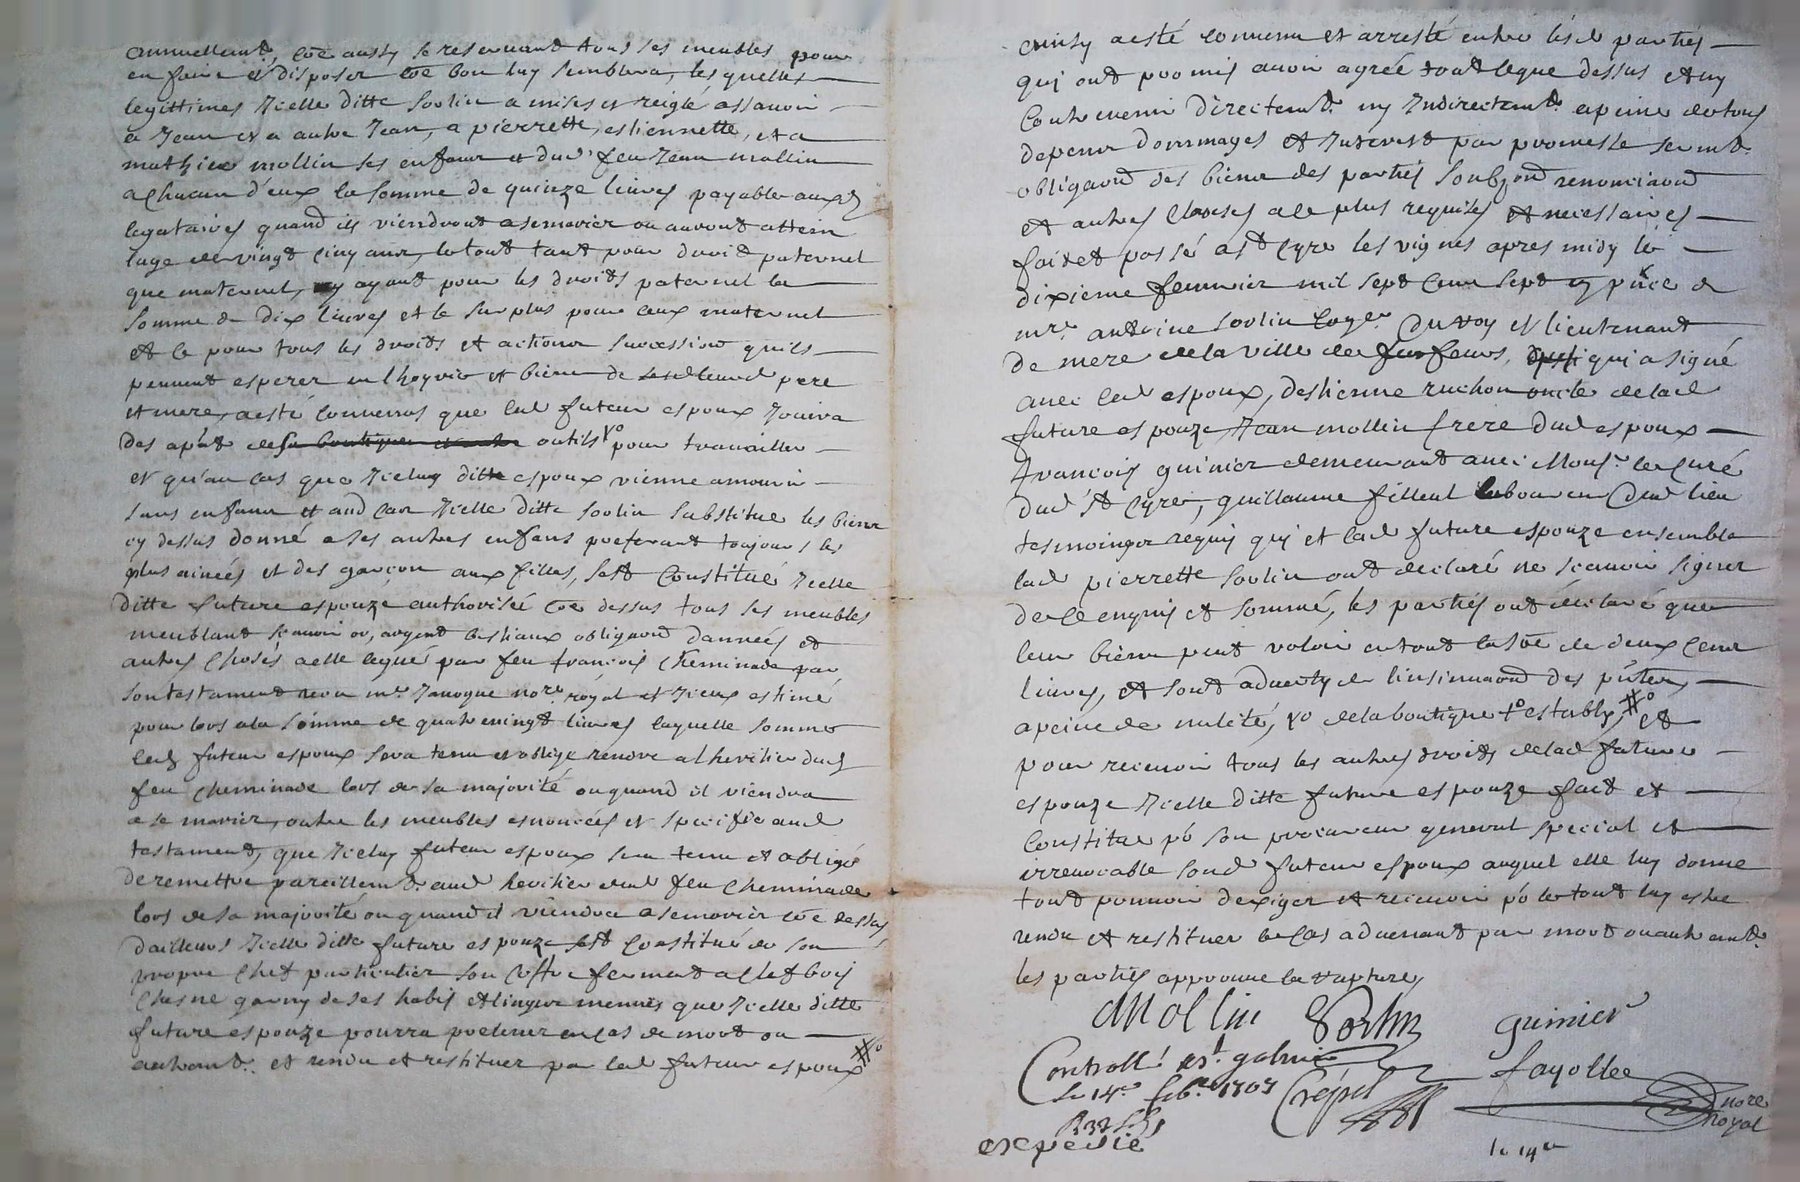 annuellemt, coe aussy se reservant tous ses meubles pour
en faire et disposer coe bon luy semblera, les quelles
legittimes Icelle ditte Soulin a mises et reiglé assavoir
a Jean et a autre Jean, a pierrette, estiennette, et a
mathieu mollin ses enfans et dud' feu Jean mollin
a Chacun d'eux la somme de quinze livres payable auxd
legataires quand ils viendront a se marier ou auront attein
lage de vingt cinq ans, le tout tant pour droit paternel
que maternel, y ayant pour les droits paternel la
somme de dix livres et le surplus pour ceux maternel
et ce pour tous les droits et actions succession quils
peuvent esperer en lhoyrie et biens de leurd pere
et mere, a esté convenus que led futeur espoux Jouira
des apñt de outils Xo pour travailler
et qu'au cas que Iceluy ditte espoux vienne amourir
sans enfans et aud cas Icelle ditte Soulin substitue les biens
cy dessus donné a ses autres enfans preferant toujours les
plus ainées et des garçon aux filles, sest Constitué Icelle
ditte future espouze authorisée coe dessus tous ses meubles
meublant scavoir or, argent bestiaux obligaons dannées et
autres choses a elle legué par feu francois Cheminade par
son testament receu mre Janogue nore royal et Iceux estimé
pour lors a la somme de quatre vingt livres laquelle somme
led futeur espoux sera tenu et oblige rendre a lheritier dud
feu Cheminade lors de sa majorité ou quand il viendra
a se marier, outre les meubles enoncées et specifié aud
testament, que Iceluy futeur espoux sera tenu et obligé
de remettre pareillemt aud heritier dud feu Cheminade
lors de sa majorité ou quand il viendra a se marier coe dessus
dailleurs Icelle ditte future espouze sest Constitué de son
propre Chef particulier son coffre fermant a clef bois
Chesne garny de ses habis et lingue menues que Icelle ditte
future espouze pourra prelever en cas de mort ou
autremt. et rendu et restituer par led futeur espoux #o
ainsy a esté convenu et arresté entre lesd parties
qui ont promis avoir agrée tout ceque dessus et ny
Contrevenir directemt ny Indirectemt a peine de tous
depens dommages et Interest par promesse sermt
obligaons des biens des parties soubzon renonciaons
et autres Clauses a ce plus requises et necessaires
fait et passé a St Cyre les vignes apres midy le
dixieme fevrier mil sept Cens sept en pñce de
mre antoine Soulin du Roy et lieutenant
de mere de la ville de feurs, qui a signé
avec led espoux, destienne ruchon oncle de lad
future espouze, Jean mollin frere dud espoux
francois guinier demeurant avec Monsr le Curé
dud St Cyre, guillaume filleul laboureur dud lieu
tesmoings requis qui et lad future espouze ensemble
lad pierrette Soulin ont declaré ne scavoir signer
de ce enquis et sommé, les parties ont declaré que
leur biens peut valoir en tout la soe de deux Cens
livres, et sont adverty de linsinuaon des pñtes,
a peine de nulité, Xo de la boutique to establÿ, #o et
pour recevoir tous les autres droits de lad future
espouze Icelle ditte future espouze fait et
Constitue po son procureur general special et
irrevocable sond futeur espoux auquel elle luy donne
tout pouvoir dexiger et recevoir po le tout luy estre
rendu et restituer le cas advenant par mort ou autremt.
les parties approuve la rapture
Mollin guinier
Controllé a St. galmier fayolle
le 14e feb.er 1707 Crépet nore
royal
expedié
le 14e